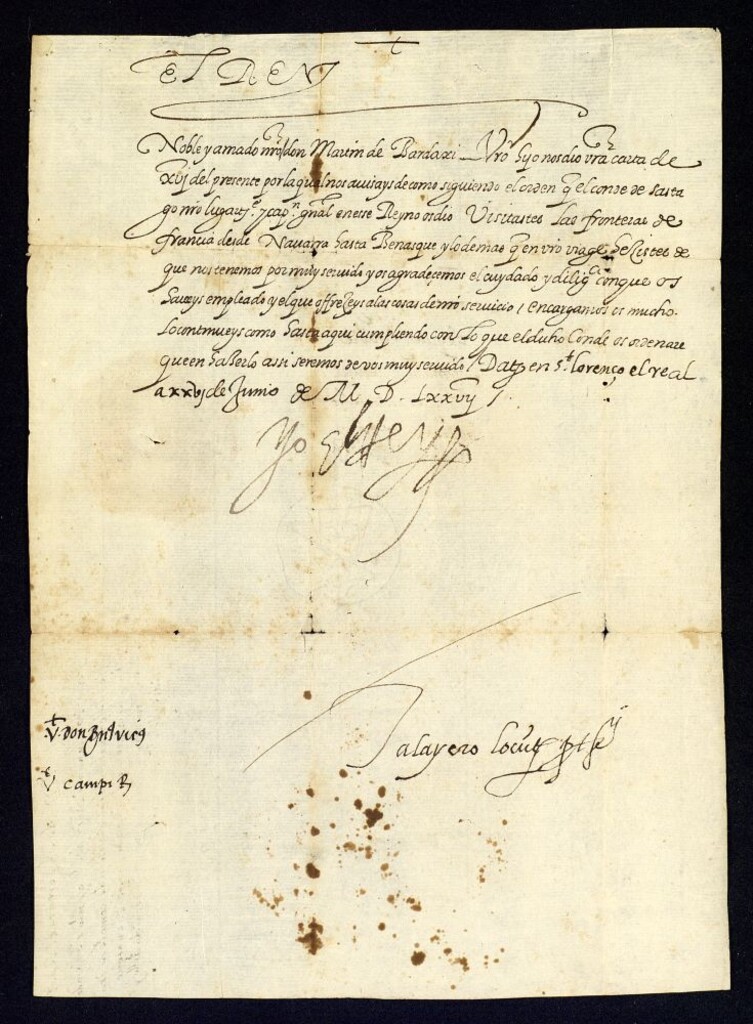 EL REY
Noble y amado nr̃o don Martin de Bardaxi. Vr̃o hyo nos dio vr̃a carta de
xvj del presente por la qual nos auisays de como siguiendo el orden q̃ el conde de Sasta
go nr̃o lugartᵉ y capⁿ gñal en esse Reyno os dio Visitastes las fronteras de
francia desde Nauarra hasta Benasque y lo demas q̃ en vr̃o viage hezistes de
que nos tenemos por muy seruido y os agradeçemos el cuydado y diligᵃ con que os
haueys empleado y el que offreçeys a las cosas de nr̃o seruicio / encargamos os mucho
lo continueys como hasta aqui cumpliendo con lo que el dicho Conde os ordenare
que en hazerlo assi seremos de vos muy seruido / Datt en sᵗ lorenço el real
a xxvj de Junio de M D Lxxvij
Yo el Rey
Talayero locut
V. don
V campi R